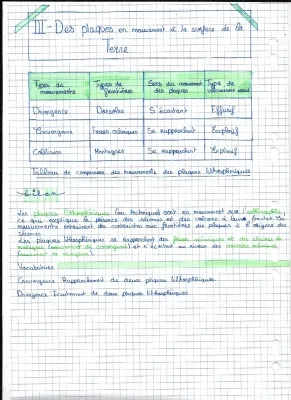 III - Des plaques en mouvement à la surface de la
Terre
Types de mouvements | Types de frontières | Sens du mouvement des plaques | Type de volcanisme
Divergence | Dorsales | S'écartent | Effusif
Convergence | Fosses océaniques | Se rapprochent | Explosif
Collision | Montagnes | Se rapprochent | Explosif
Tableau de comparaison des mouvements des plaques lithosphériques
Bilan
Les plaques lithosphériques (ou tectoniques) sont en mouvement sur l'asthénosphère,
ce qui explique la présence des séismes et des volcans à leurs frontières. Les
mouvements entraînent des contraintes aux frontières des plaques à l'origine des
séismes.
Les plaques lithosphériques se rapprochent des fosses océaniques et des chaînes de
montagnes (mouvement de convergence) et s'écartent au niveau des dorsales océaniques
(mouvement de divergence).
Vocabulaire
Convergence: Rapprochement de deux plaques lithosphériques.
Divergence: Écartement de deux plaques lithosphériques.